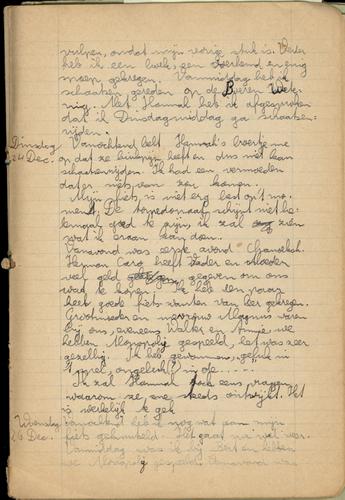 vulpen, omdat mijn vorige stuk is. Verder
heb ik een boek, een en enig
snoep gekregen. Vanmiddag heb ik
schaatsen gereden op de Boeren Wete-
ring. Met Hannah heb ik afgesproken
dat ik Dinsdagmiddag ga schaatsen-
rijden.
Dinsdag Vanochtend belt Hannah's
24 Dec. op dat ze heeft en dus niet kan
schaatsenrijden. Ik had een vermoeden
dat er iets van zou komen.
Mijn fiets is niet erg best op 't mo-
ment. De torpedonaaf schijnt niet he-
lemaal goed te zijn, ik zal zien
wat ik eraan kan doen.
Vanavond was eerste avond Chanoekah.
Herman Caro heeft Vader en Moeder
veel geld gegeven om ons
wat te kopen. Ik heb een paar
heel goede fiets wanten van leer gekregen.
Grootmoeder en mevrouw Magnus waren
bij ons, eveneens Walter en Annie, we
hebben Monopoly gespeeld, het was zeer
gezellig. Ik heb gewonnen, geluk in
't spel, ongeluk (?) in de .....
Ik zal Hannah eens vragen
waarom ze me steeds ontwijkt. Het
is werkelijk te gek
Woensdag Vanochtend heb ik nog wat aan mijn
25 Dec. fiets geknutseld. Het gaat nu wat
Vanmiddag was ik bij Bert en hebben
we Monopoly gespeeld. was